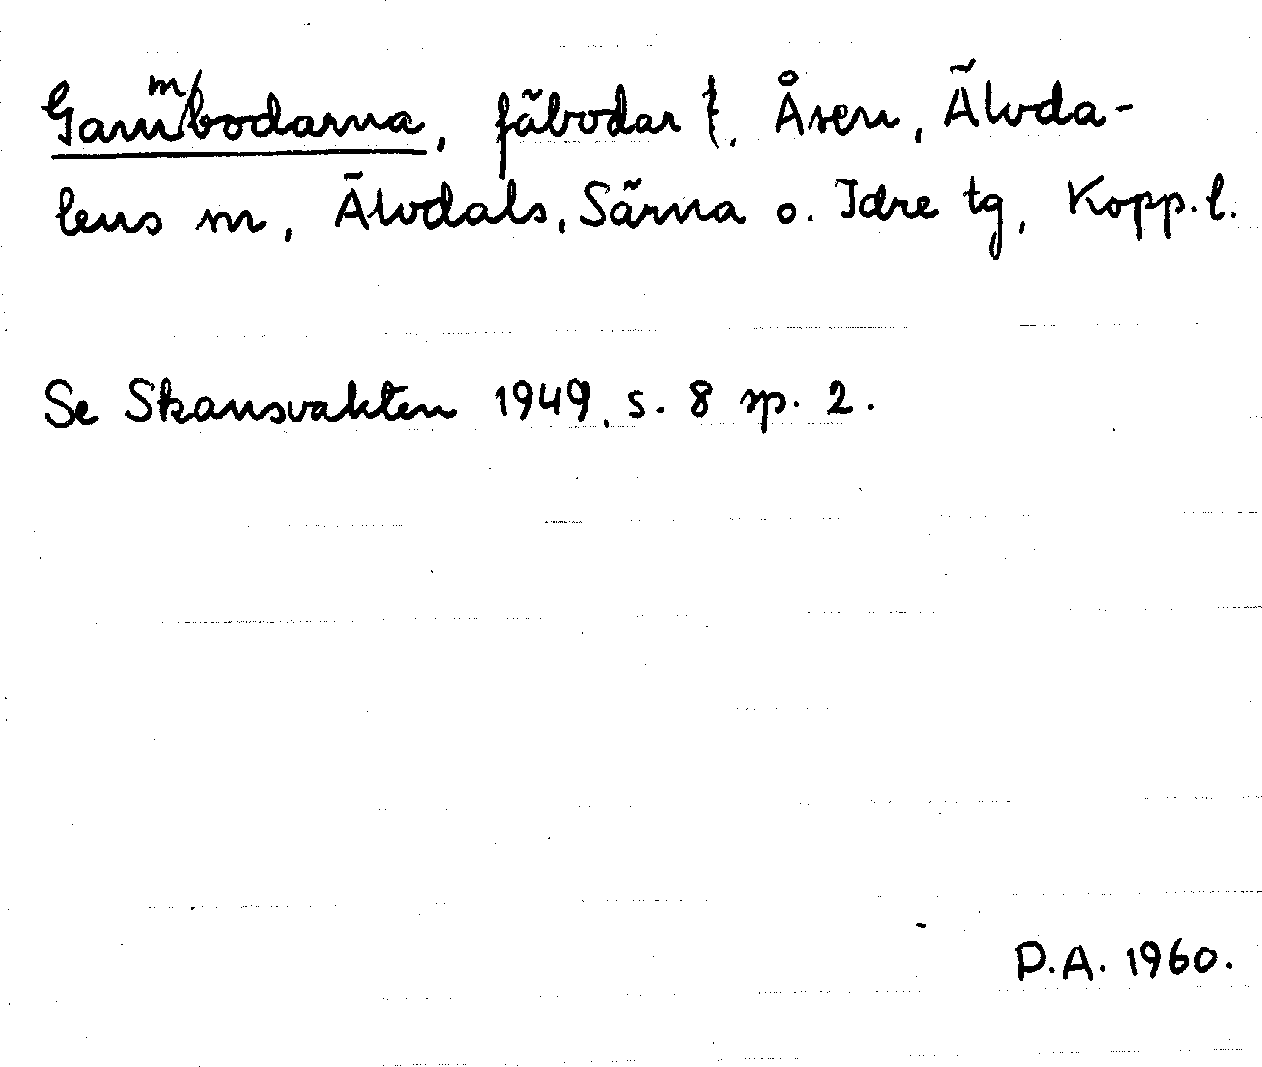 Gammbodarna, fäbodar t. Åsen, Älvda-
lens sn, Älvdals, Särna o. Idre tg, Kopp. l.
Se Skansvakten 1949, s. 8 sp. 2.
P.A. 1960.